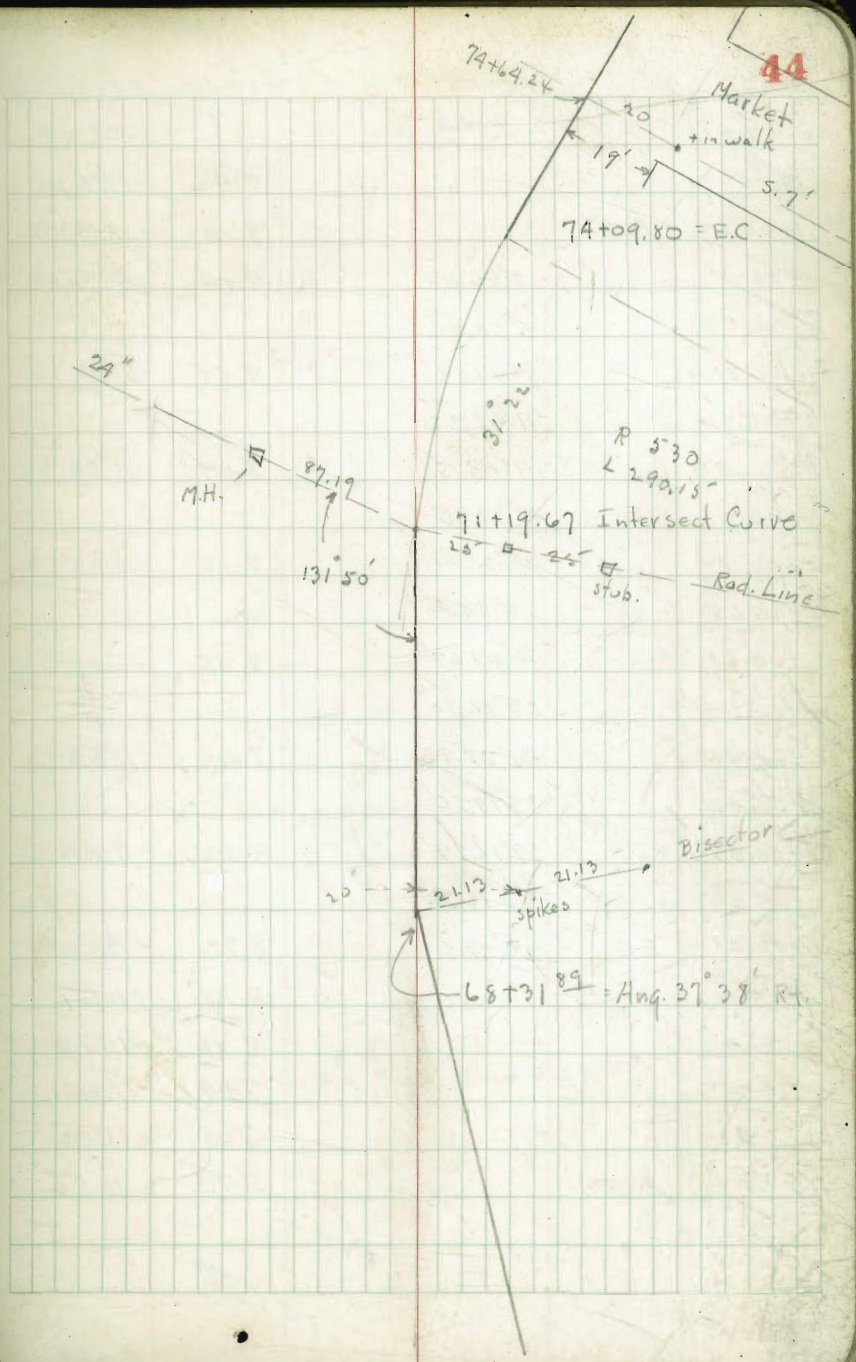 44
74+64.24
Market
20
+ in walk
19'
5.7'
74+09.80 = E.C
24"
31° 22'
R 530
L 290.15
87.19
M.H.
71+19.67 Intersect Curve
25 25
131° 50'
stub.
Rad. Line
Bisector
20'
21.13 21.13
spikes
68+31 89 = Ang. 37° 38' Rt.